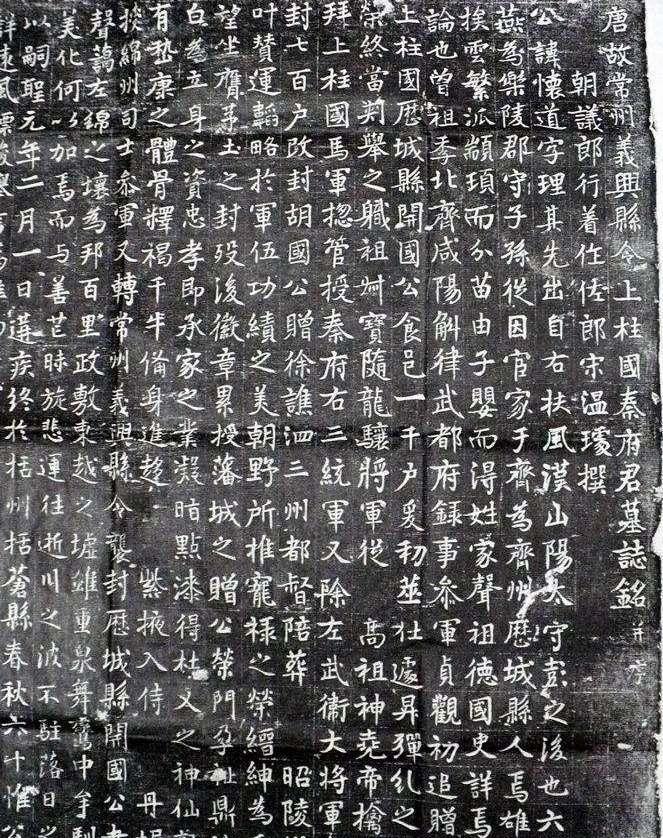 唐故常州義興縣令上柱國秦府君墓誌銘并序
朝議郎行着作佐郎宋溫璩撰
公諱懷道字理其先出自右扶風漢山陽太守彭之後也六
燕為樂陵郡守子孫從因官家于齊為齊州歷城縣人焉雄
挨雲繁派顓頊而分苗由子嬰而得姓家聲祖德國史詳焉
論也曾祖季北齊咸陽斛律武都府録事叅軍貞觀初追贈
上柱國歷城縣開國公食邑一千户爰初筮仕遽昇彈糺之
榮終當剃舉之職祖尗寶隨龍驤將軍從 高祖神堯帝擒
拜上柱國馬軍揔管授秦府右三統軍又除左武衛大將軍
封七百户改封胡國公贈徐譙泗三州都督陪葬 昭陵
叶贊運韜略於軍伍功績之美朝野所推寵祿之榮縉紳為
望坐膺茅土之封歿後徽章累授藩城之贈公榮門孕祉鼎
白為立身之資忠孝即承家之業凝暗點漆得杜乂之神仙
有嵇康之體骨釋褐千牛俻身進趍 紫掖入侍 丹
掞綿州司士叅軍又轉常州義興縣令襲封歷城縣開國公
聲藹左綿之壤為邦百里政敷東越之墟雄重泉舞鸞中牟馴
美化何以加焉而与善芒昧旋悲運往逝川之波不駐落日之
以嗣聖元年二月一日遘疾終於括州括蒼縣春秋六十惟公